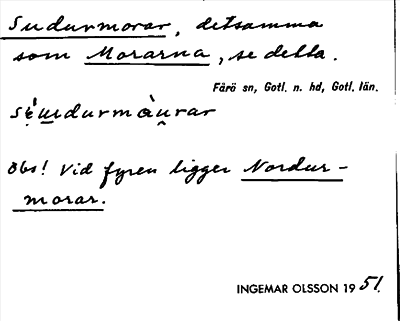 Sudurmorar, detsamma
som Morarna, se detta.
Fårö sn, Gotl. n. hd, Gotl. län.
Obs! Vid fyren ligger Nordur-
morar.
INGEMAR OLSSON 1951.